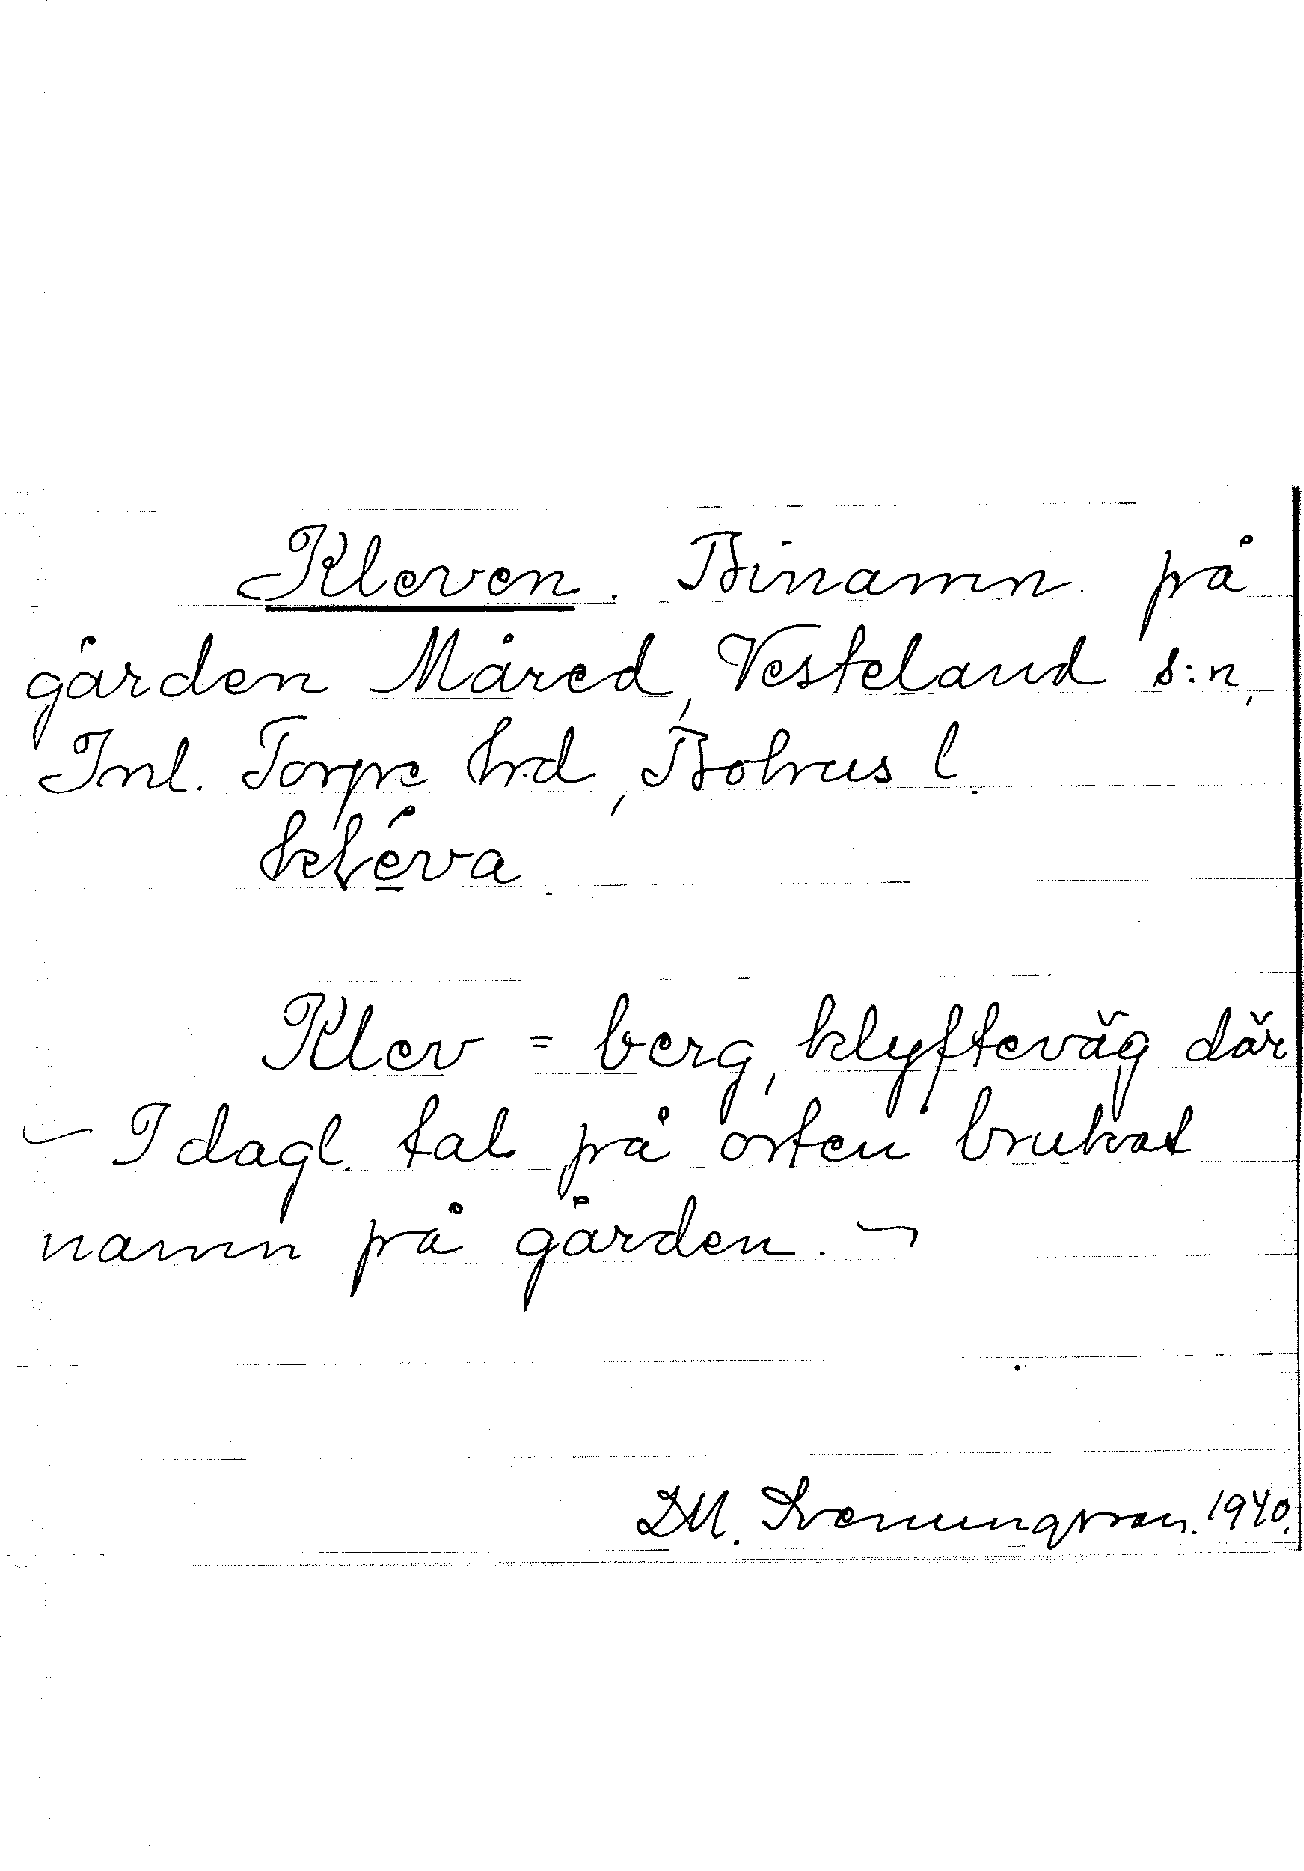 Kleven. Binamn på
gården Måred, Vesteland s:n,
Inl. Torpe hrd, Bohus l.
kléva
Klev = berg, klyfteväg där
– I dagl. tal på orten brukat
namn på gården. ¬
D.M. Sveningsson. 1940.